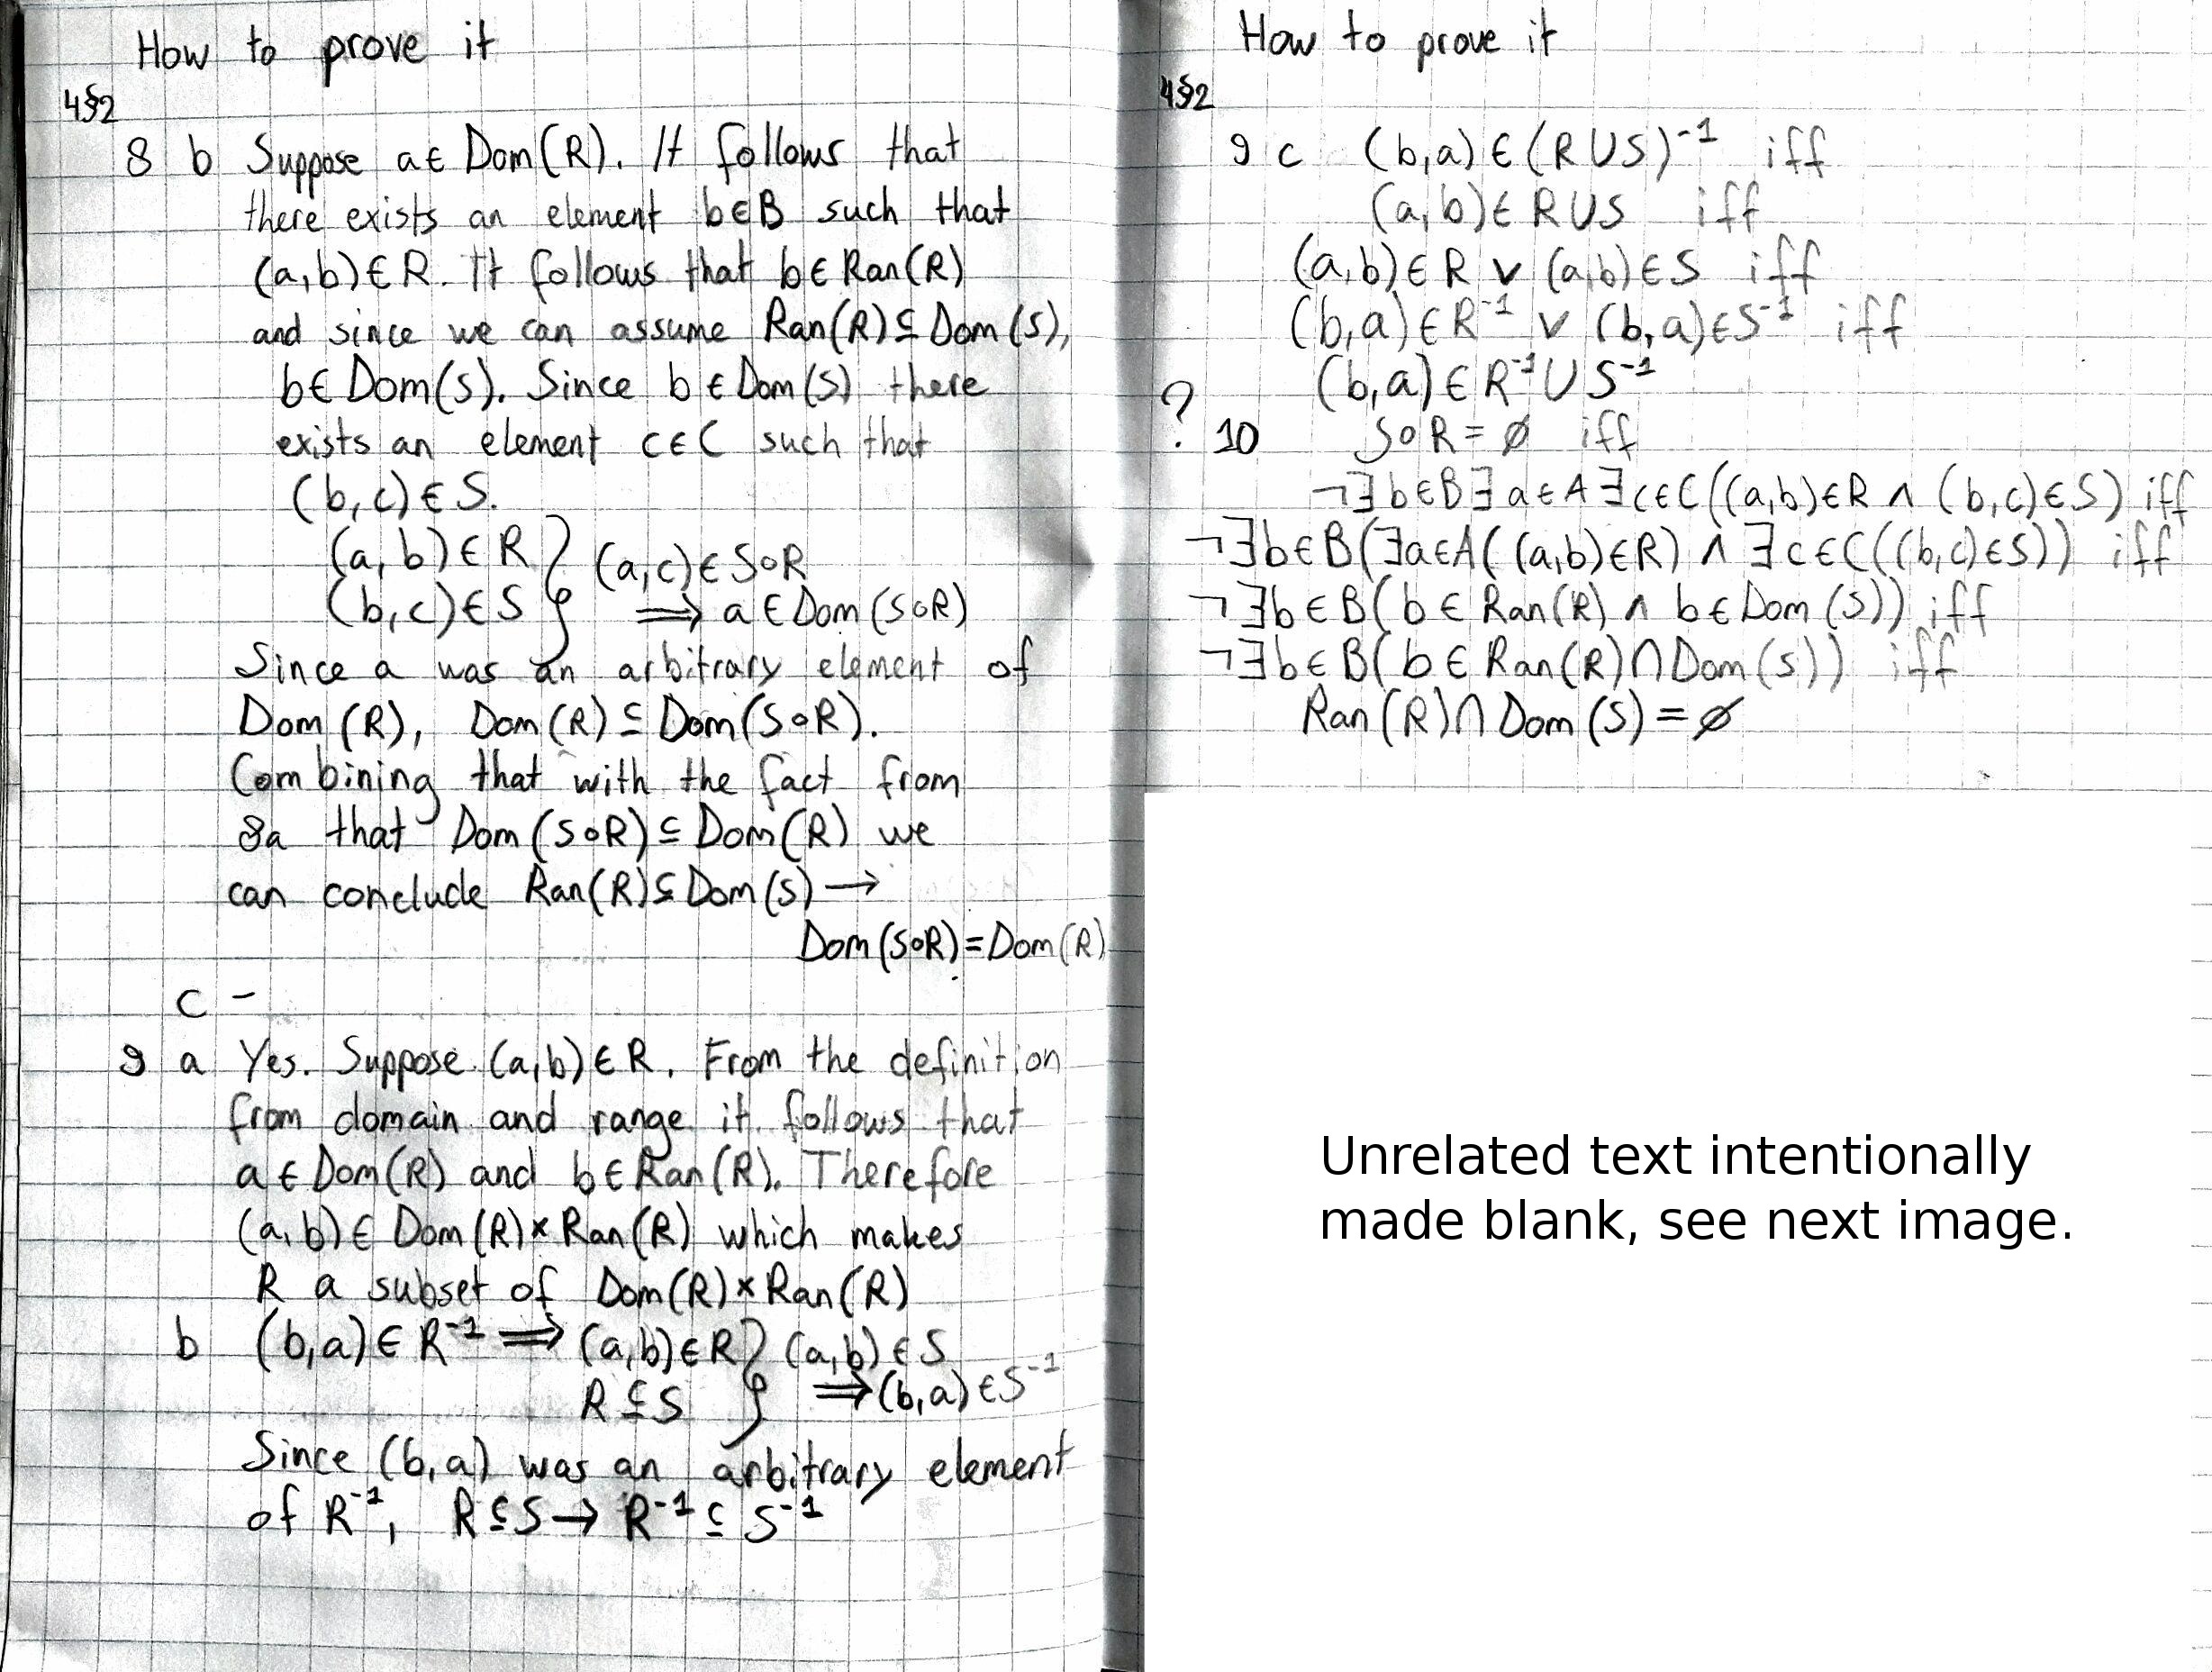 How to prove it
4§2
8 b Suppose a∈Dom(R). It follows that
there exists an element b∈B such that
(a,b)∈R. It follows that b∈Ran(R)
and since we can assume Ran(R)⊆Dom(S),
b∈Dom(S). Since b∈Dom(S) there
exists an element c∈C such that
(b,c)∈S.
(a,b)∈R } (a,c)∈S∘R
(b,c)∈S ⟹ a∈Dom(S∘R)
Since a was an arbitrary element of
Dom(R), Dom(R)⊆Dom(S∘R).
Combining that with the fact from
8a that Dom(S∘R)⊆Dom(R) we
can conclude Ran(R)⊆Dom(S)→
Dom(S∘R)=Dom(R)
c -
9 a Yes. Suppose (a,b)∈R. From the definition
from domain and range it follows that
a∈Dom(R) and b∈Ran(R). Therefore
(a,b)∈Dom(R)×Ran(R) which makes
R a subset of Dom(R)×Ran(R)
b (b,a)∈R⁻¹ ⟹ (a,b)∈R } (a,b)∈S
R⊆S ⟹ (b,a)∈S⁻¹
Since (b,a) was an arbitrary element
of R⁻¹, R⊆S→R⁻¹⊆S⁻¹
How to prove it
4§2
9 c (b,a)∈(R∪S)⁻¹ iff
(a,b)∈R∪S iff
(a,b)∈R ∨ (a,b)∈S iff
(b,a)∈R⁻¹ ∨ (b,a)∈S⁻¹ iff
(b,a)∈R⁻¹∪S⁻¹
? 10 S∘R=∅ iff
¬∃b∈B∃a∈A∃c∈C((a,b)∈R ∧ (b,c)∈S) iff
¬∃b∈B(∃a∈A((a,b)∈R) ∧ ∃c∈C((b,c)∈S)) iff
¬∃b∈B(b∈Ran(R) ∧ b∈Dom(S)) iff
¬∃b∈B(b∈Ran(R)∩Dom(S)) iff
Ran(R)∩Dom(S)=∅
Unrelated text intentionally
made blank, see next image.